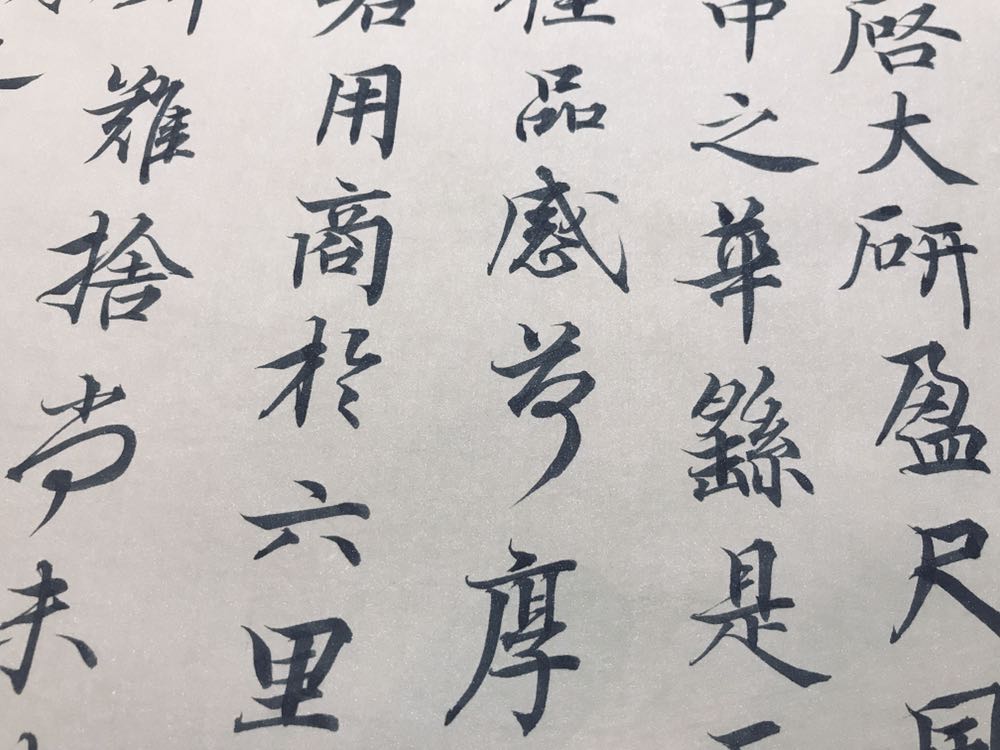 啓大研盈尺
之華繇是
品感厚
用商於六里
難捨尚未